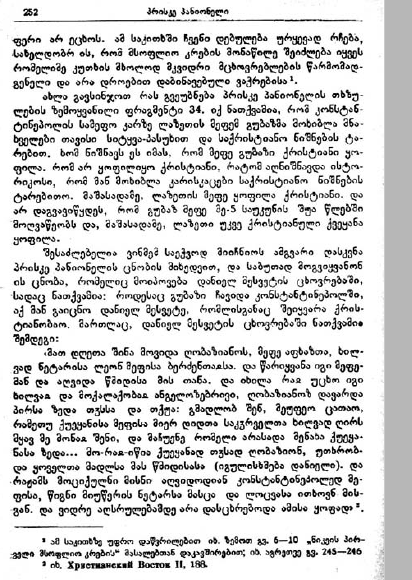 252 პრისკე პანიონელი
ფერი არ ეცხოს. ამ საკითხში ჩვენი დებულება ურყევად რჩება,
სახელდობრ ის, რომ მსოფლიო კრების მონაწილე შეიძლება იყვეს
რომელიმე კუთხის მხოლოდ მკვიდრი მცხოვრებლების წარმომად-
გენელი და არა დროებით დაბინავებული ვაჭრებისა¹.
ახლა გავსინჯოთ რას გვეუბნება პრისკე პანიონელის თხზუ-
ლების ზემოყვანილი ფრაგმენტი 34. იქ ნათქვამია, რომ კონსტან-
ტინეპოლის სამეფო კარზე ლაზეთის მეფემ გუბაზმა მოხიბლა მნა-
ხველები თავისი სიტყვა-პასუხით და საქრისტიანო ნიშნების ტა-
რებით. ხომ ნიშნავს ეს იმას, რომ მეფე გუბაზი ქრისტიანი ყო-
ფილა. რომ არ ყოფილიყო ქრისტიანი, რატომ აღნიშნავდა ისტო-
რიკოსი, რომ მან მოხიბლა კარისკაცები საქრისტიანო ნიშნების
ტარებითო. მაშასადამე, ლაზეთის მეფე ყოფილა ქრისტიანი. და
არ დაგვავიწყდეს, რომ გუბაზ მეფე მე-5 საუკუნის შუა წლებში
მოღვაწეობს და, მაშასადამე, ლაზეთი უკვე ქრისტიანული ქვეყანა
ყოფილა.
შესაძლებელია ვინმემ საეჭვოდ მიიჩნიოს ამგვარი დასკვნა
პრისკე პანიონელის ცნობის მიხედვით, და საბუთად მოგვიყვანონ
ის ცნობა, რომელიც მოიპოვება დანიელ მესვეტის ცხოვრებაში,
სადაც ნათქვამია: როდესაც გუბაზი ჩავიდა კონსტანტინეპოლში,
იქ მან გაიცნო დანიელ მესვეტე, რომლისგანაც შეიყვარა ქრის-
ტიანობიო. მართლაც, დანიელ მესვეტის ცხოვრებაში ნათქვამია
შემდეგი:
„მათ დღეთა შინა მოვიდა ღობაზიანოს, მეფე აფხაზთა, ხილ-
ვად ნეტარისა ლეონ მეფისა ბერძენთაჲსა. და წარიყვანა იგი მეფე-
მან და აღვიდა წმიდისა მის თანა. და იხილა რაჲ უცხო იგი
ხილვაჲ და მოქალაქობაჲ ანგელოზებრივი, ღობაზიანოზ დავარდა
პირსა ზედა თჳსსა და თქუა: გმადლობ შენ, მეუფეო ცათაო,
რამეთუ ქუეყანისა მეფისა მიერ დიდთა საკჳრველთა ხილვად ღირს
მყავ მე მონაჲ შენი, და მაჩუენე რომელი არასადა მენახა ქუეყა-
ნასა ზედა... მო-რაჲ-იწია ქუეყანად თჳსად ღობაზიონ, უთხრობ-
და ყოველთა მადლსა მას წმიდისასა (იგულისხმება დანიელი). და
რაჟამს მოციქულნი მისნი აღვიდოდიან კონსტანტინეპოლედ მე-
ფისა, წიგნი მიუწერის ნეტარსა მასცა და ლოცვასა ითხოვნ მის-
გან. და ვიდრე აღსრულებამდე არა დასცხრებოდა ამისა ყოფად“².
¹ ამ საკითხზე უფრო დაწვრილებით იხ. ზემოთ გვ. 6—10 „ნიკეის პირ-
ველი მსოფლიო კრების“ მასალებთან დაკავშირებით; იხ. აგრეთვე გვ. 245—246
² იხ. Христианский Восток II, 188.